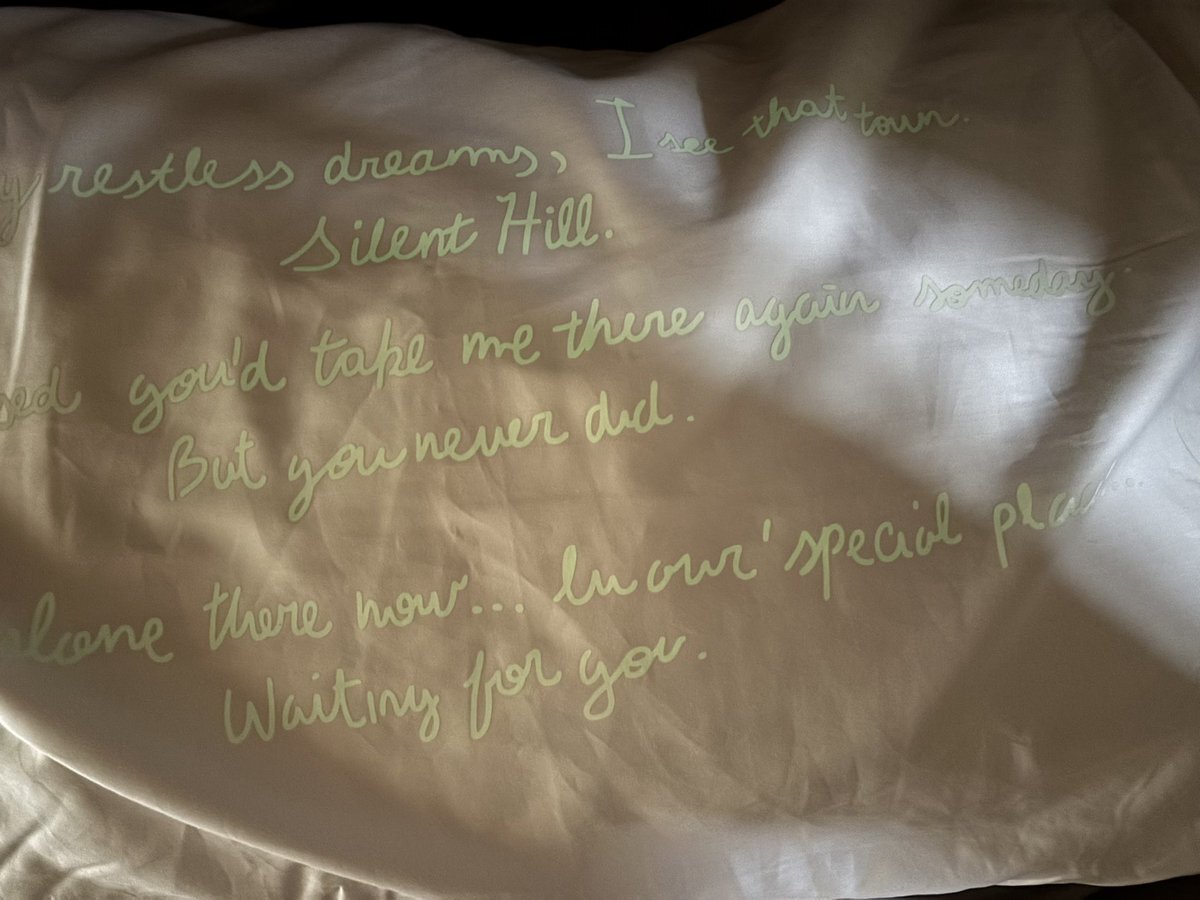 y restless dreams, I see that town.
Silent Hill.
sed you'd take me there again someday.
But you never did.
alone there now... In our 'special place...
Waiting for you.